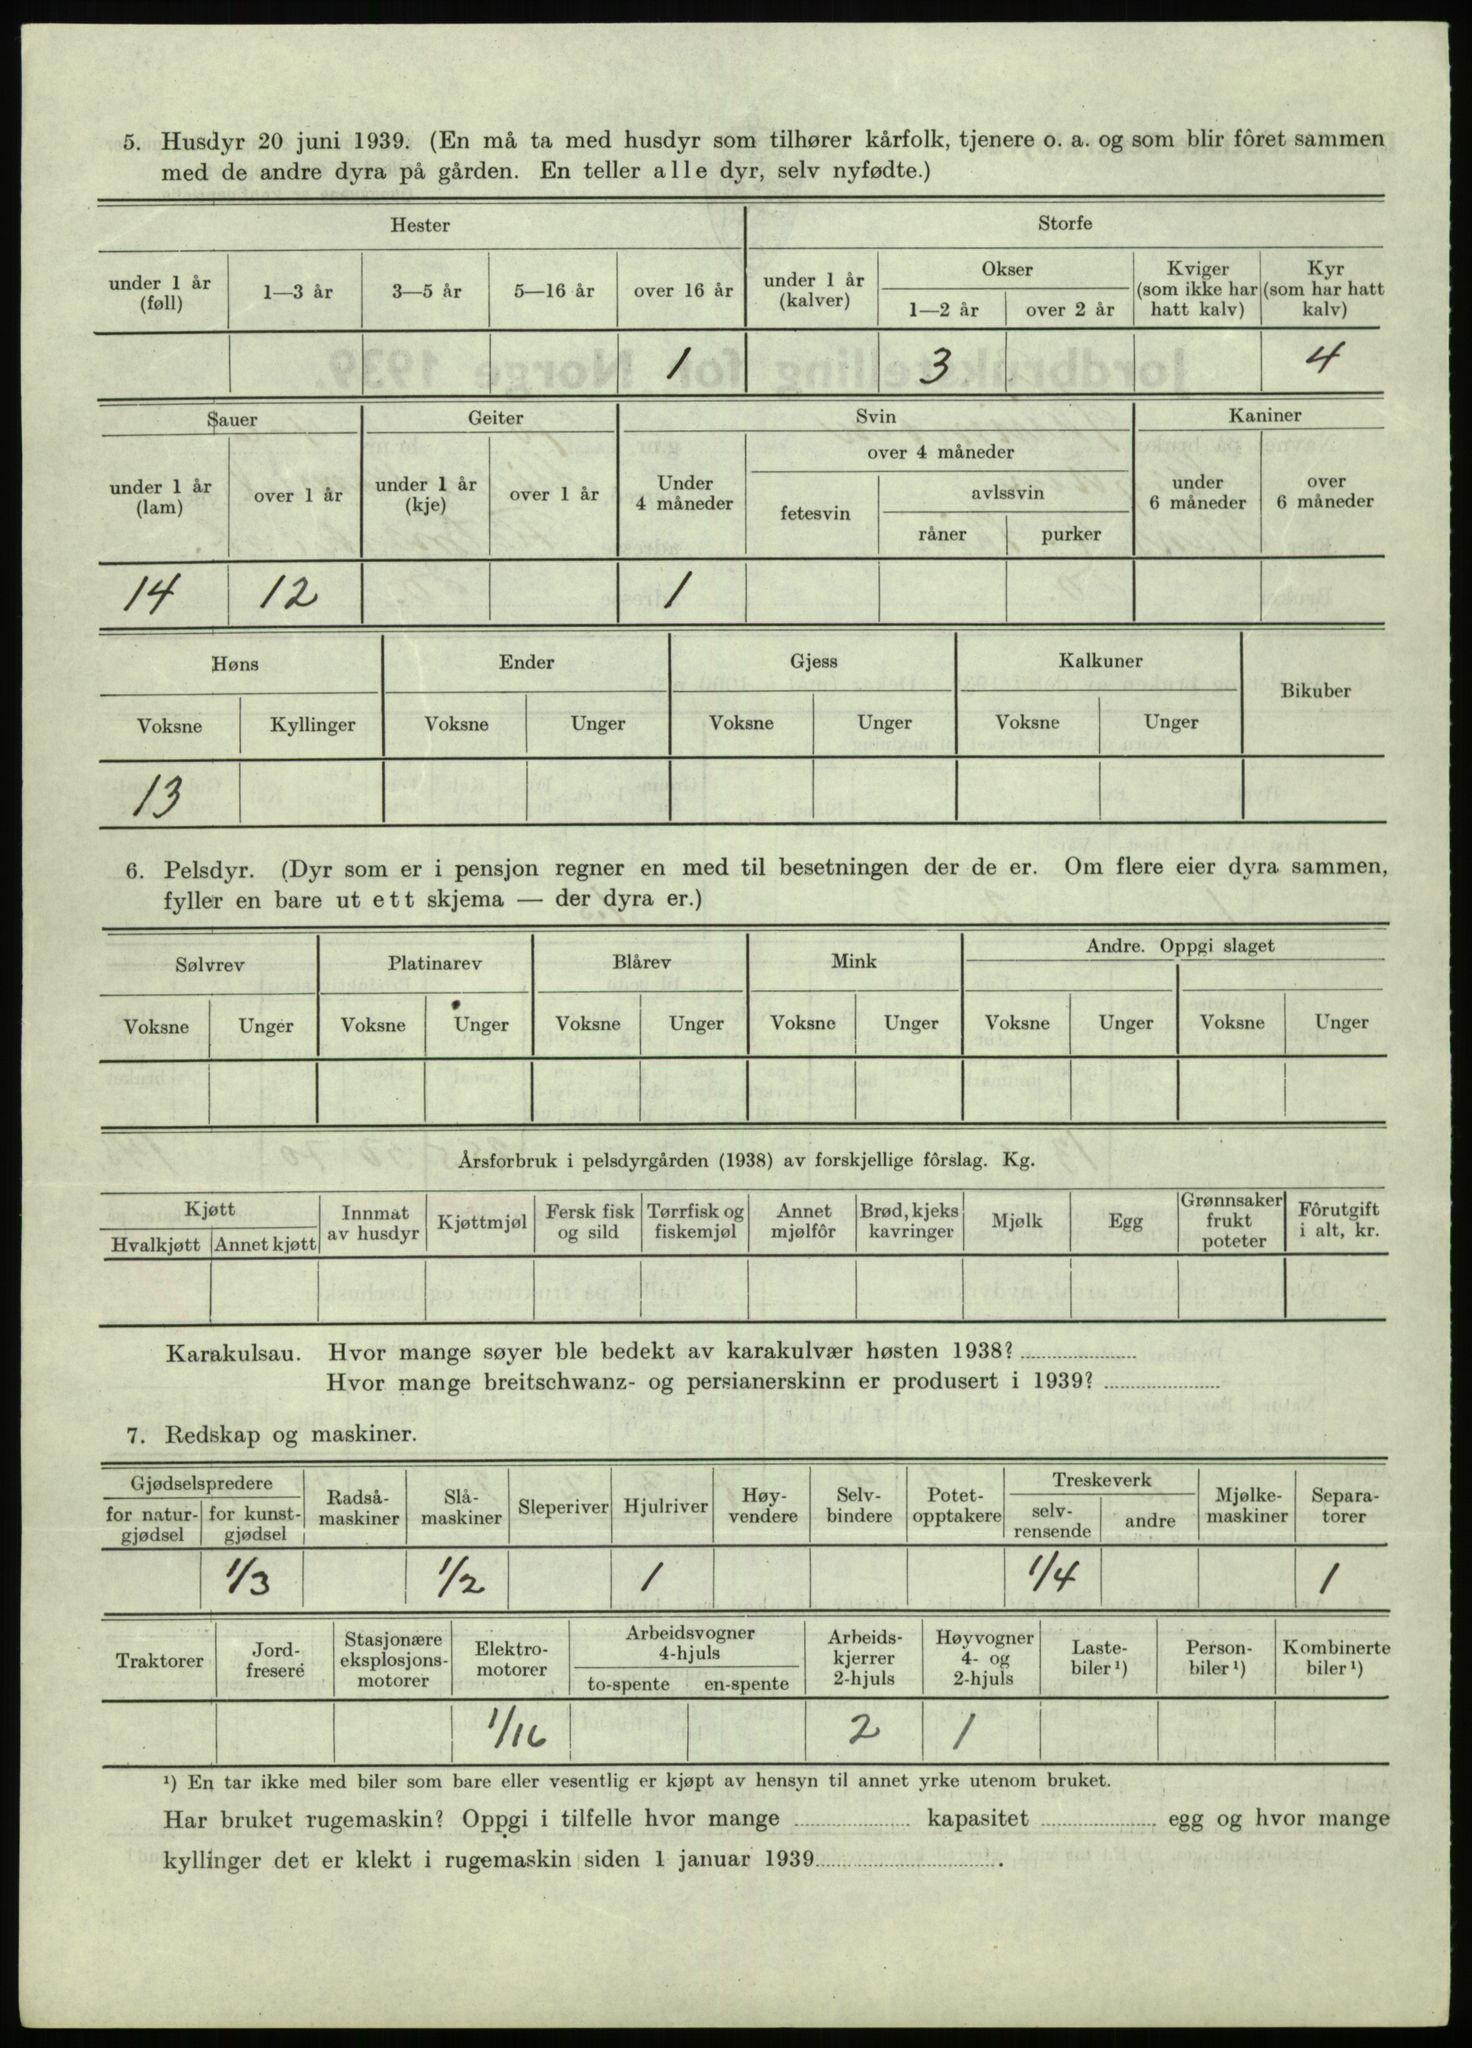 5. Husdyr 20 juni 1939. (En må ta med husdyr som tilhører kårfolk, tjenere o. a. og som blir fôret sammen
med de andre dyra på gården. En teller alle dyr, selv nyfødte.)
Hester Storfe
under 1 år (føll) 1—3 år 3—5 år 5—16 år over 16 år under 1 år (kalver) Okser 1—2 år over 2 år Kviger (som ikke har hatt kalv) Kyr (som har hatt kalv)
1 3 4
Sauer Geiter Svin Kaniner
under 1 år (lam) over 1 år under 1 år (kje) over 1 år Under 4 måneder over 4 måneder fetesvin avlssvin råner purker under 6 måneder over 6 måneder
14 12 1
Høns Ender Gjess Kalkuner Bikuber
Voksne Kyllinger Voksne Unger Voksne Unger Voksne Unger
13
6. Pelsdyr. (Dyr som er i pensjon regner en med til besetningen der de er. Om flere eier dyra sammen,
fyller en bare ut ett skjema — der dyra er.)
Sølvrev Platinarev Blårev Mink Andre. Oppgi slaget
Voksne Unger Voksne Unger Voksne Unger Voksne Unger Voksne Unger Voksne Unger
Årsforbruk i pelsdyrgården (1938) av forskjellige fôrslag. Kg.
Kjøtt Hvalkjøtt Annet kjøtt Innmat av husdyr Kjøttmjøl Fersk fisk og sild Tørrfisk og fiskemjøl Annet mjølfôr Brød, kjeks kavringer Mjølk Egg Grønnsaker frukt poteter Fôrutgift i alt, kr.
Karakulsau. Hvor mange søyer ble bedekt av karakulvær høsten 1938?
Hvor mange breitschwanz- og persianerskinn er produsert i 1939?
7. Redskap og maskiner.
Gjødselspredere for natur-gjødsel for kunst-gjødsel Radså-maskiner Slå-maskiner Sleperiver Hjulriver Høy-vendere Selv-bindere Potet-opptakere Treskeverk selv-rensende andre Mjølke-maskiner Separa-torer
1/3 1/2 1 1/4 1
Traktorer Jord-fresere Stasjonære eksplosjons-motorer Elektro-motorer Arbeidsvogner 4-hjuls to-spente en-spente Arbeids-kjerrer 2-hjuls Høyvogner 4- og 2-hjuls Laste-biler ¹) Person-biler ¹) Kombinerte biler ¹)
1/16 2 1
¹) En tar ikke med biler som bare eller vesentlig er kjøpt av hensyn til annet yrke utenom bruket.
Har bruket rugemaskin? Oppgi i tilfelle hvor mange kapasitet egg og hvor mange
kyllinger det er klekt i rugemaskin siden 1 januar 1939.